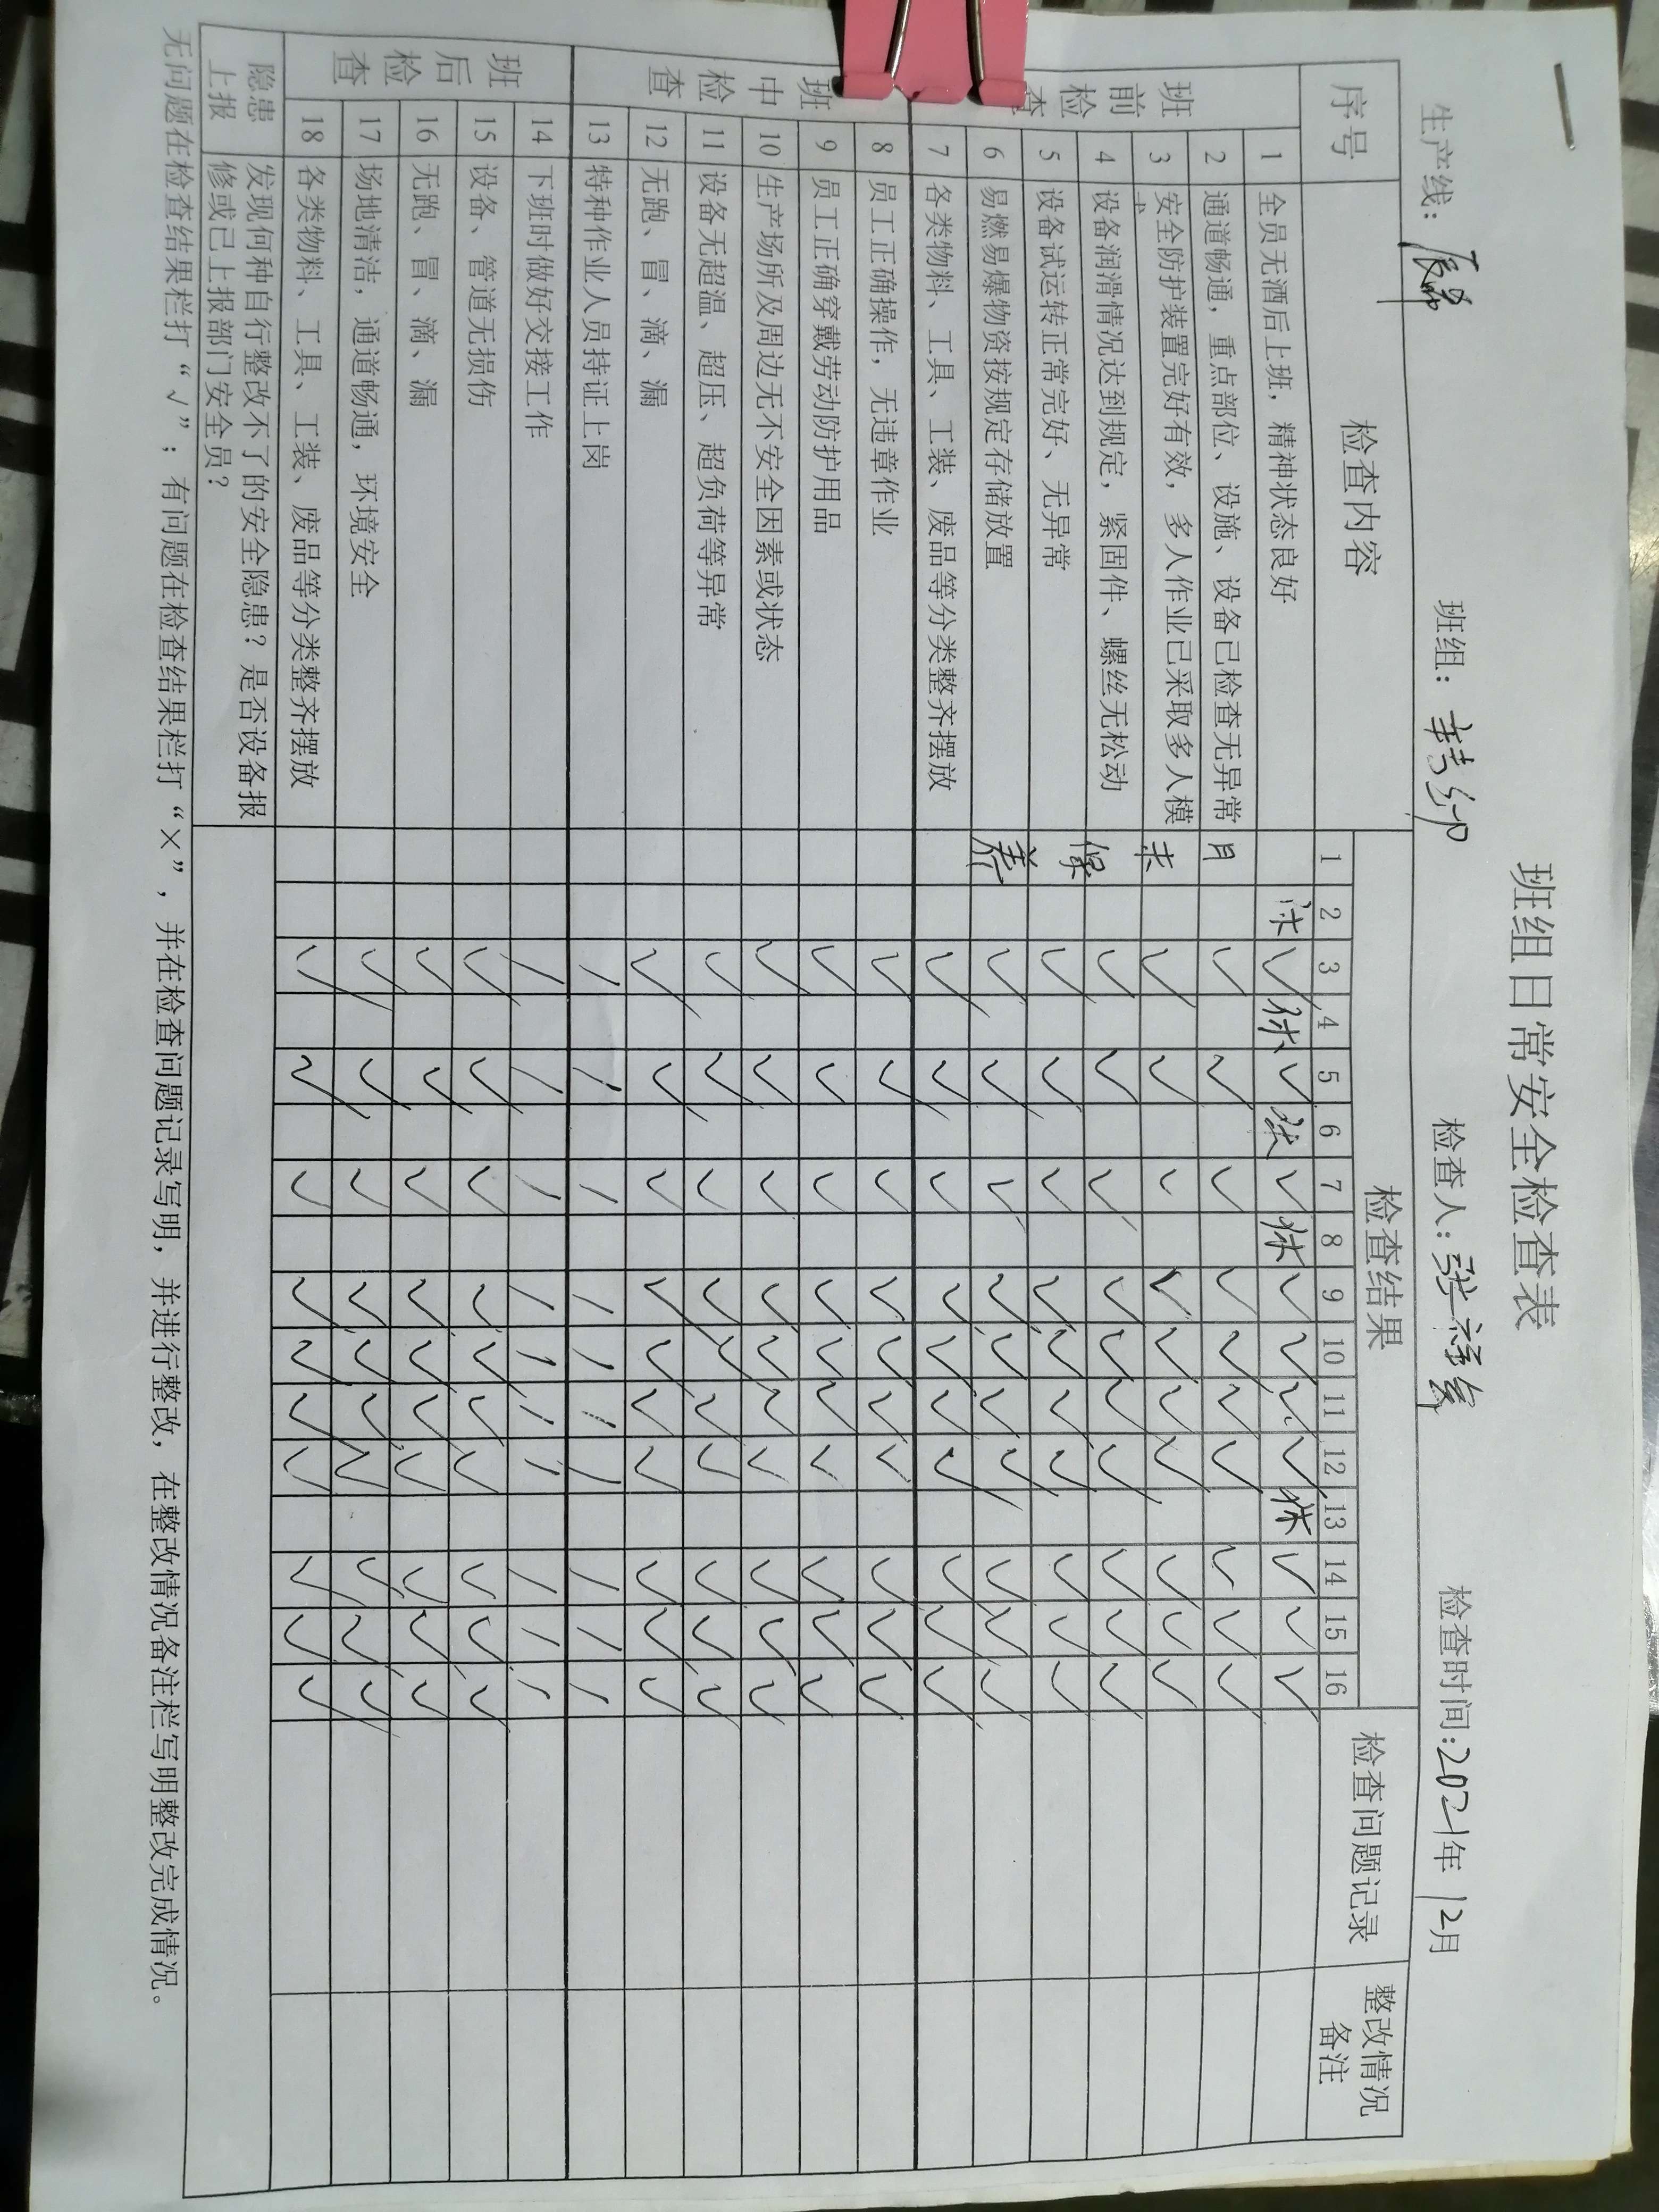 班组日常安全检查表
生产线： 班组： 检查人： 检查时间：2021年12月
序号 检查内容 检查结果 检查问题记录 整改情况备注
1 2 3 4 5 6 7 8 9 10 11 12 13 14 15 16
班前检查
1 全员无酒后上班，精神状态良好 休 √ 休 √ √ 休 √ √ √ √ 休 √ √ √
2 通道畅通，重点部位、设施、设备已检查无异常 月 √ √ √ √ √ √ √ √ √ √
3 安全防护装置完好有效，多人作业已采取多人模 末 √ √ √ √ √ √ √ √ √ √
4 设备润滑情况达到规定，紧固件、螺丝无松动 保 √ √ √ √ √ √ √ √ √ √
5 设备试运转正常完好、无异常 √ √ √ √ √ √ √ √ √ √
6 易燃易爆物资按规定存储放置 养 √ √ √ √ √ √ √ √ √ √
7 各类物料、工具、工装、废品等分类整齐摆放 √ √ √ √ √ √ √ √ √ √
班中检查
8 员工正确操作，无违章作业 √ √ √ √ √ √ √ √ √ √
9 员工正确穿戴劳动防护用品 √ √ √ √ √ √ √ √ √ √
10 生产场所及周边无不安全因素或状态 √ √ √ √ √ √ √ √ √ √
11 设备无超温、超压、超负荷等异常 √ √ √ √ √ √ √ √ √ √
12 无跑、冒、滴、漏 √ √ √ √ √ √ √ √ √ √
13 特种作业人员持证上岗 / / / / / / / / / /
班后检查
14 下班时做好交接工作 / / / / / / / / / /
15 设备、管道无损伤 √ √ √ √ √ √ √ √ √ √
16 无跑、冒、滴、漏 √ √ √ √ √ √ √ √ √ √
17 场地清洁，通道畅通，环境安全 √ √ √ √ √ √ √ √ √ √
18 各类物料、工具、工装、废品等分类整齐摆放 √ √ √ √ √ √ √ √ √ √
隐患上报 发现何种自行整改不了的安全隐患？是否设备报
修或已上报部门安全员？
无问题在检查结果栏打“√”；有问题在检查结果栏打“×”，并在检查问题记录写明，并进行整改，在整改情况备注栏写明整改完成情况。